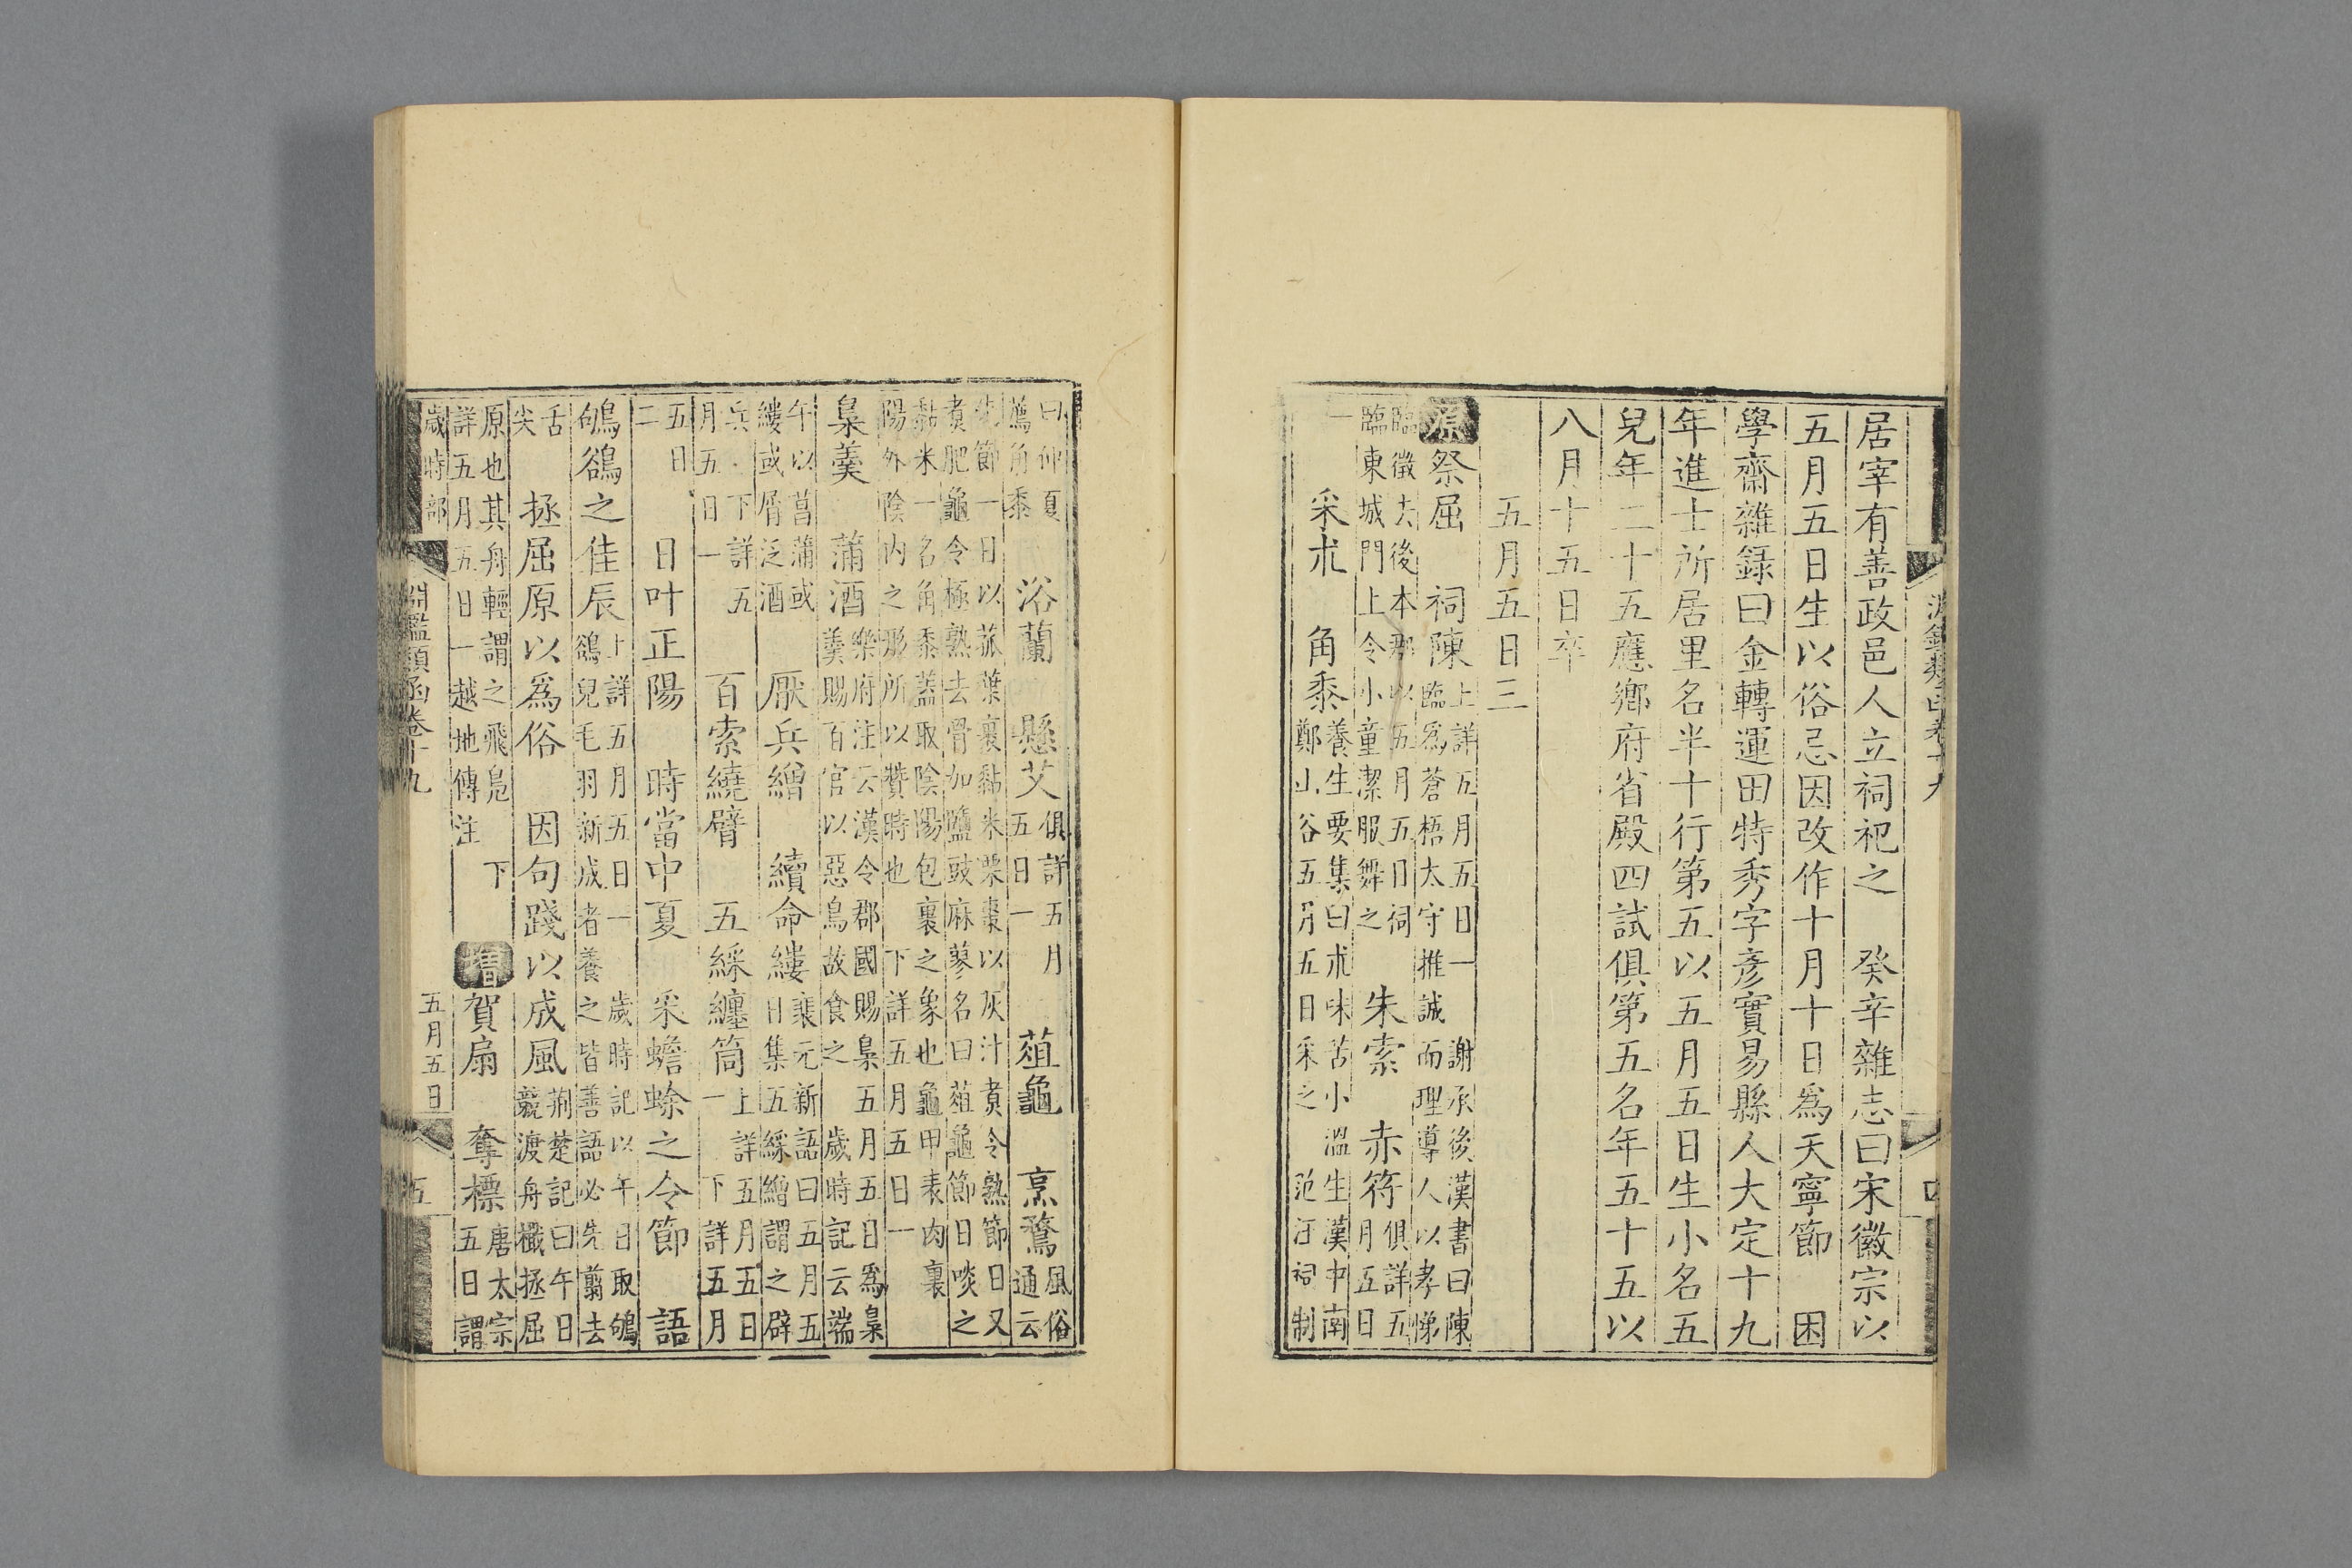 淵鑑類函卷十九
四
居宰有善政邑人立祠祀之　癸辛雜志曰宋徽宗以
五月五日生以俗忌因改作十月十日為天寧節　困
學齋雜録曰金轉運田特秀字彦實易縣人大定十九
年進士所居里名半十行第五以五月五日生小名五
兒年二十五應鄉府省殿四試俱第五名年五十五以
八月十五日卒
五月五日三
源祭屈　祠陳
上詳五月五日一　謝承後漢書曰陳
臨為蒼梧太守推誠而理導人以孝悌
臨徵去後本郡以五月五日祠
臨東城門上令小童潔服舞之
朱索　赤符
俱詳五
月五日
一
采朮　角黍
養生要集曰朮味苦小溫生漢中南
鄭山谷五月五日采之　范汪祠制
曰仲夏
薦角黍
浴蘭　懸艾
俱詳五月
五日一
葅龜　烹鶩
風俗
通云
先節一日以菰葉裹黏米栗棗以灰汁煮令熟節日又
煮肥龜令極熟去骨加鹽豉麻蓼名曰葅龜節日啖之
黏米一名角黍蓋取陰陽包裹之象也龜甲表肉裏
陽外陰内之形所以贊時也　下詳五月五日一
梟羹　蒲酒
樂府注云漢令郡國賜梟五月五日為梟
羹賜百官以惡鳥故食之　歲時記云端
午以菖蒲或
縷或屑泛酒
厭兵繒　續命縷
裴元新語曰五月五
日集五綵繒謂之辟
兵　下詳五
月五日一
百索繞臂　五綵纏筒
上詳五月五日
一　下詳五月
五日
二
日叶正陽　時當中夏　采蟾蜍之令節　語
鴝鵒之佳辰
上詳五月五日一　歲時記以午日取鴝
鵒兒毛羽新成者養之皆善語必先翦去
舌
尖
拯屈原以為俗　因句踐以成風
荆楚記曰午日
競渡舟檝拯屈
原也其舟輕謂之飛鳧　下
詳五月五日一越地傳注
增賀扇　奪標
唐太宗
五日謂
歲時部
淵鑑類函卷十九
五月五日
五